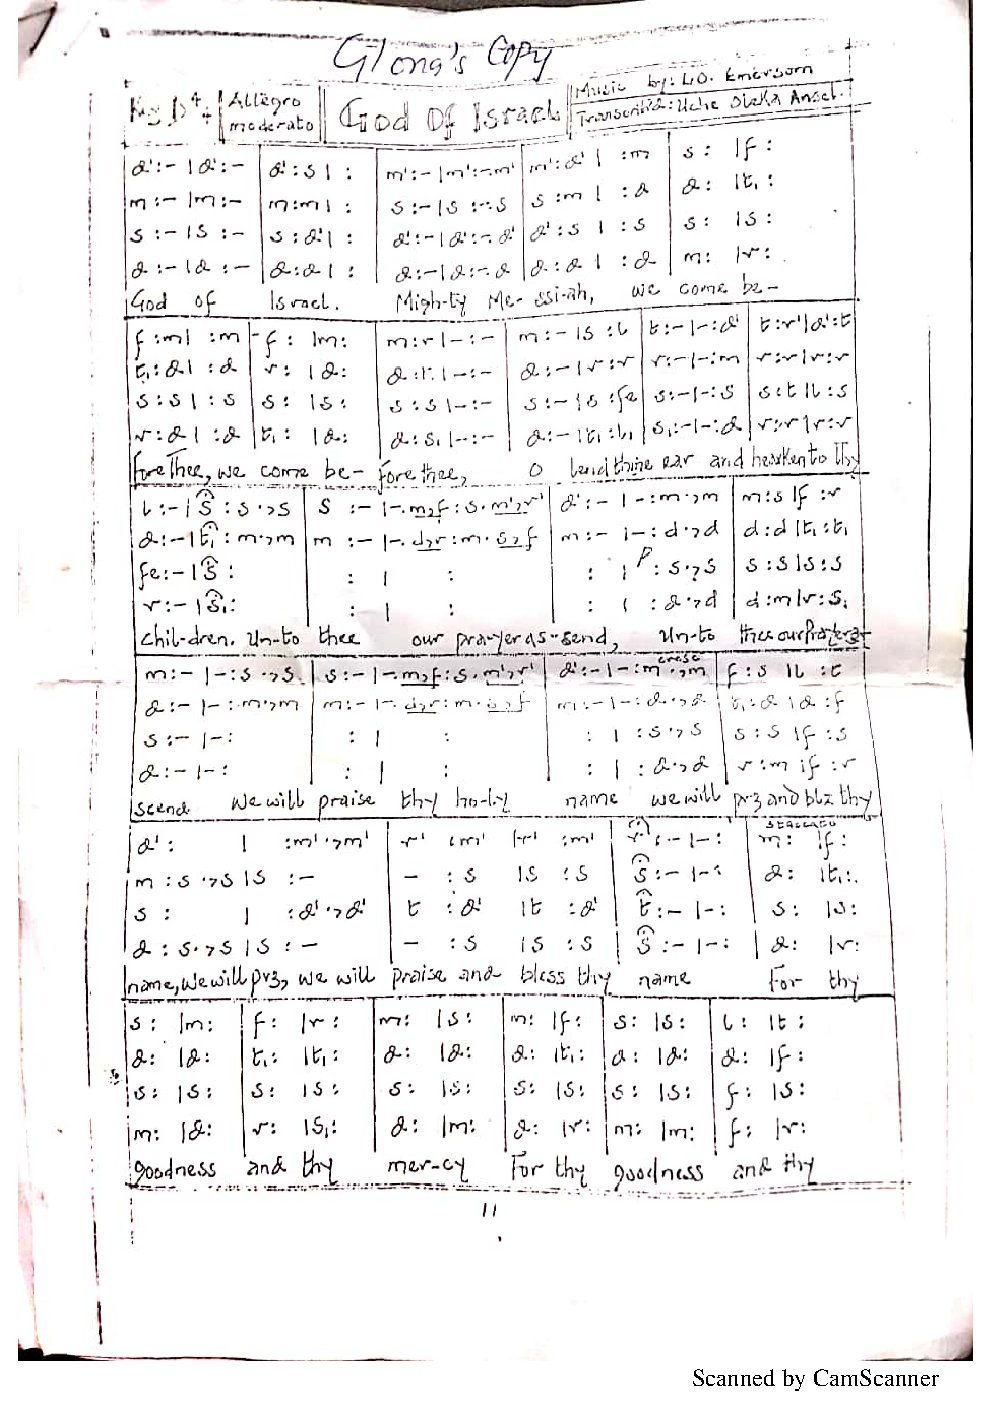 Glong's Copy
Key D 4/4 | Allegro moderato | God Of Israel | Music by: L.O. Emerson
Transcribed: Uche Dieka Ansel.
d':-|d':- | d':s| : | m':-|m':-.m' | m':d'| :m | s: |f:
m:-|m:- | m:m| : | s:-|s:-.s | s:m| :d | d: |t₁:
s:-|s:- | s:d'| : | d':-|d':-.d' | d':s| :s | s: |s:
d:-|d:- | d:d| : | d:-|d:-.d | d:d| :d | m: |r:
God of Israel. Migh-ty Me-ssi-ah, we come be-
f:m| :m | f: |m: | m:r|-:- | m:-|s:l | t:-|-:d' | t:r'|d':t
t₁:d| :d | r: |d: | d:t₁|-:- | d:-|r:r | r:-|-:m | r:r|r:r
s:s| :s | s: |s: | s:s|-:- | s:-|s:fe | s:-|-:s | s:t|l:s
r:d| :d | t₁: |d: | d:s₁|-:- | d:-|t₁:l₁ | s₁:-|-:d | r:r|r:r
fore Thee, we come be- fore thee, O lend thine ear and hearken to Thy
l:-|s:s.,s | s:-|-.m,f:s.m',r' | d':-|-:m.,m | m:s|f:r
d:-|t₁:m.,m | m:-|-.d,r:m.s,f | m:-|-:d.,d | d:d|t₁:t₁
fe:-|s: | : | : | : | p:s.,s | s:s|s:s
r:-|s₁: | : | : | : | :d.,d | d:m|r:s₁
chil-dren. Un-to thee our prayer as-send, Un-to thee our Prayer as-
cresc
m:-|-:s.,s | s:-|-.m,f:s.m',r' | d':-|-:m.,m | f:s|l:t
d:-|-:m.,m | m:-|-.d,r:m.s,f | m:-|-:d.,d | t₁:d|d:f
s:-|-: | : | : | : | :s.,s | s:s|f:s
d:-|-: | : | : | : | :d.,d | r:m|f:r
scend We will praise thy ho-ly name we will prz and blz thy
staccato
d': | :m'.,m' | r':m'|r':m' | r':-|-: | m: |f:
m:s.,s|s:- | -:s|s:s | s:-|-: | d: |t₁:.
s: | :d'.,d' | t:d'|t:d' | t:-|-: | s: |s:
d:s.,s|s:- | -:s|s:s | s:-|-: | d: |r:
name, we will prz, we will praise and bless thy name For thy
s: |m: | f: |r: | m: |s: | m: |f: | s: |s: | l: |t:
d: |d: | t₁: |t₁: | d: |d: | d: |t₁: | d: |d: | d: |f:
s: |s: | s: |s: | s: |s: | s: |s: | s: |s: | f: |s:
m: |d: | r: |s₁: | d: |m: | d: |r: | m: |m: | f: |r:
goodness and thy mer-cy For thy goodness and thy
11
Scanned by CamScanner